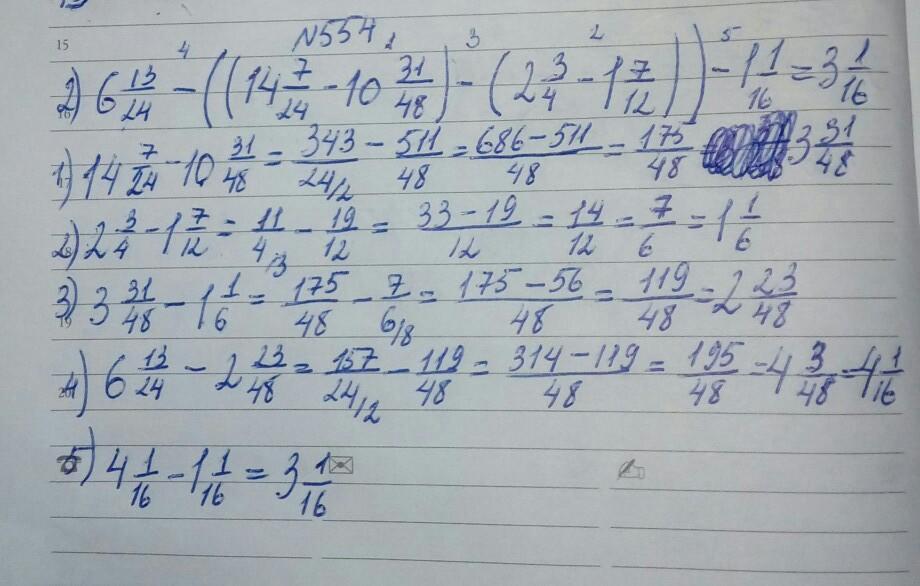 N554
2) 6 13/24 - ((14 7/24 - 10 31/48) - (2 3/4 - 1 7/12)) - 1 1/16 = 3 1/16
1) 14 7/24 - 10 31/48 = 343/24/2 - 511/48 = 686-511/48 = 175/48 3 31/48
2) 2 3/4 - 1 7/12 = 11/4/3 - 19/12 = 33-19/12 = 14/12 = 7/6 = 1 1/6
3) 3 31/48 - 1 1/6 = 175/48 - 7/6/8 = 175-56/48 = 119/48 = 2 23/48
4) 6 13/24 - 2 23/48 = 157/24/2 - 119/48 = 314-119/48 = 195/48 = 4 3/48 = 4 1/16
5) 4 1/16 - 1 1/16 = 3 1/16